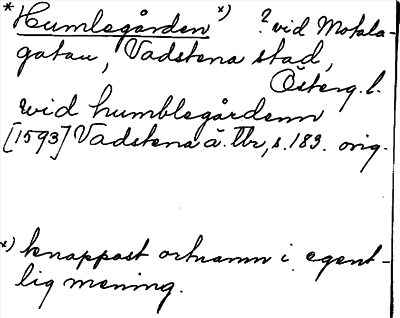 * Humlegården x) ? vid Motala-
gatan, Vadstena stad,
Österg. l.
wid humblegårdenn
[1593] Vadstena ä. Tbr, s. 189. orig.
x) knappast ortnamn i egent-
lig mening.